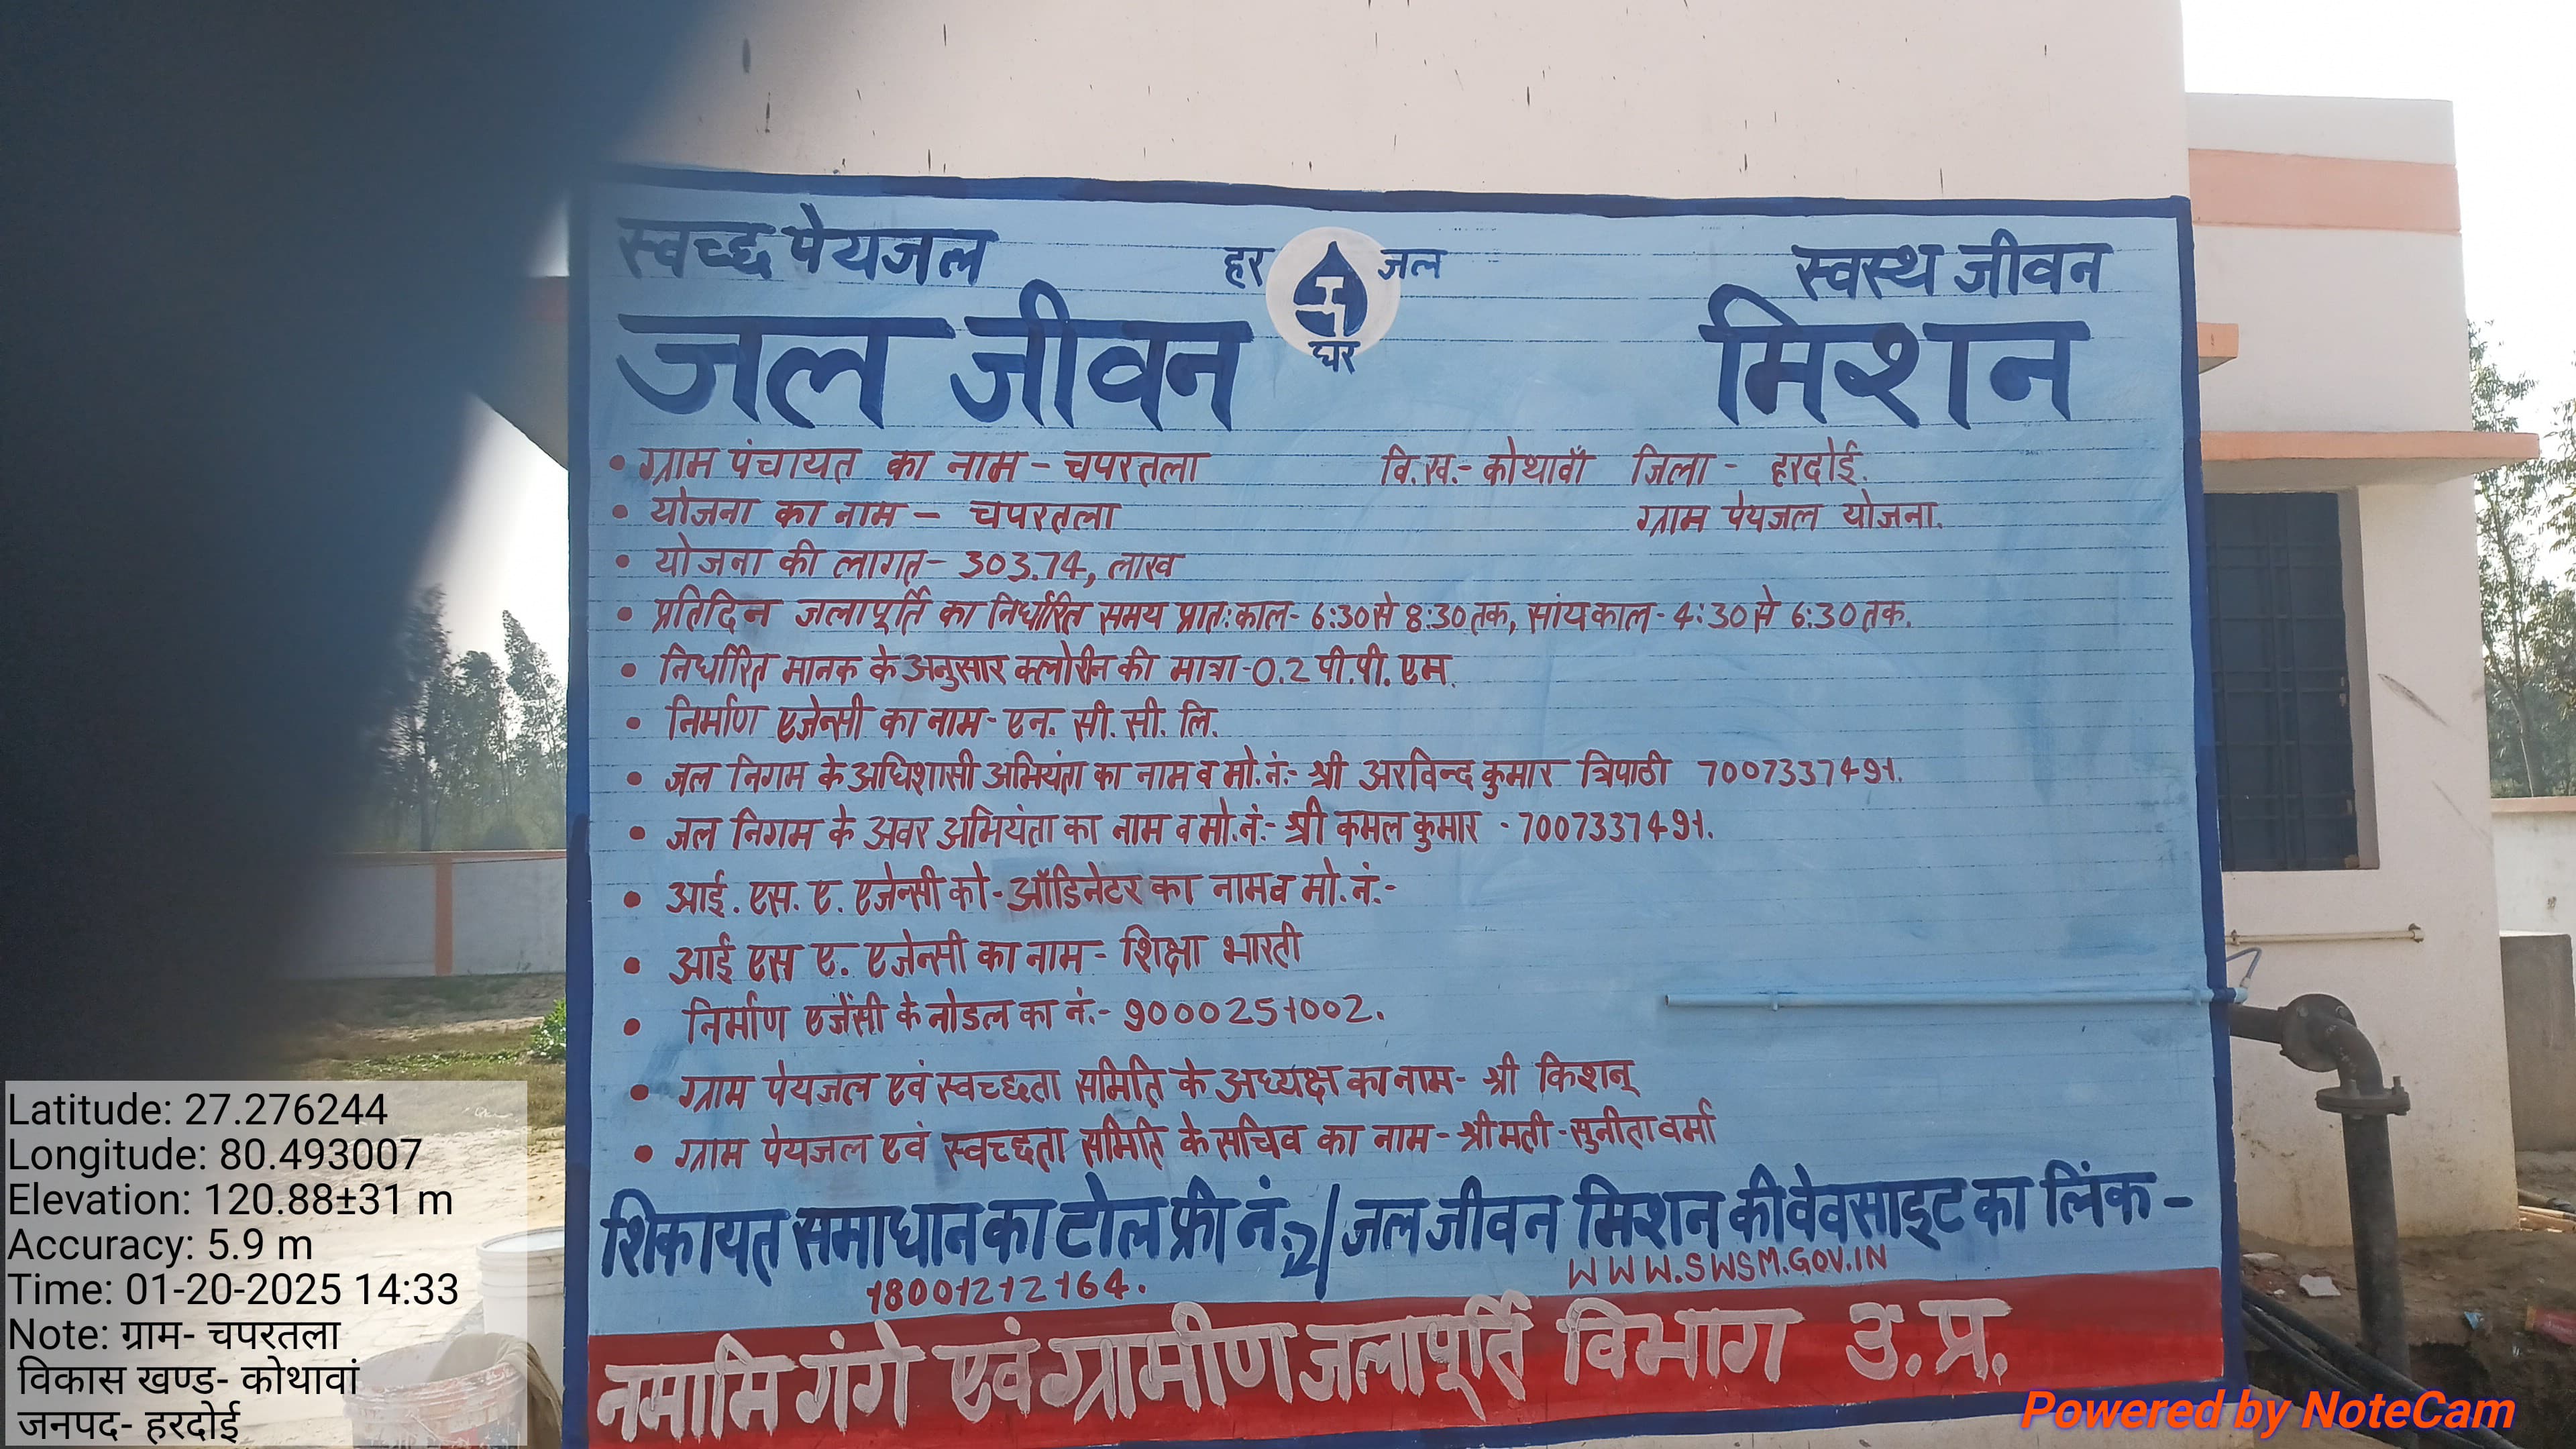 स्वच्छ पेयजल
हर जल
घर
स्वस्थ जीवन
जल जीवन मिशन
• ग्राम पंचायत का नाम - चपरतला वि.ख.- कोथावाँ जिला - हरदोई.
• योजना का नाम - चपरतला ग्राम पेयजल योजना.
• योजना की लागत - 303.74, लाख
• प्रतिदिन जलापूर्ति का निर्धारित समय प्रात:काल- 6:30 से 8:30 तक, सांयकाल - 4:30 से 6:30 तक.
• निर्धारित मानक के अनुसार क्लोरीन की मात्रा - 0.2 पी.पी. एम.
• निर्माण एजेन्सी का नाम - एन. सी. सी. लि.
• जल निगम के अधिशासी अभियंता का नाम व मो.नं:- श्री अरविन्द कुमार त्रिपाठी 7007337491.
• जल निगम के अवर अभियंता का नाम व मो.नं:- श्री कमल कुमार - 7007337491.
• आई. एस. ए. एजेन्सी को-ऑडिनेटर का नाम व मो.नं:-
• आई एस ए. एजेन्सी का नाम - शिक्षा भारती
• निर्माण एजेंसी के नोडल का नं:- 9000251002.
• ग्राम पेयजल एवं स्वच्छता समिति के अध्यक्ष का नाम - श्री किशन्
• ग्राम पेयजल एवं स्वच्छता समिति के सचिव का नाम - श्रीमती - सुनीता वर्मा
शिकायत समाधान का टोल फ्री नं. / जल जीवन मिशन की वेवसाइट का लिंक -
18001212164. WWW.SWSM.GOV.IN
नमामि गंगे एवं ग्रामीण जलापूर्ति विभाग उ.प्र.
Latitude: 27.276244
Longitude: 80.493007
Elevation: 120.88±31 m
Accuracy: 5.9 m
Time: 01-20-2025 14:33
Note: ग्राम- चपरतला
विकास खण्ड- कोथावां
जनपद- हरदोई
Powered by NoteCam